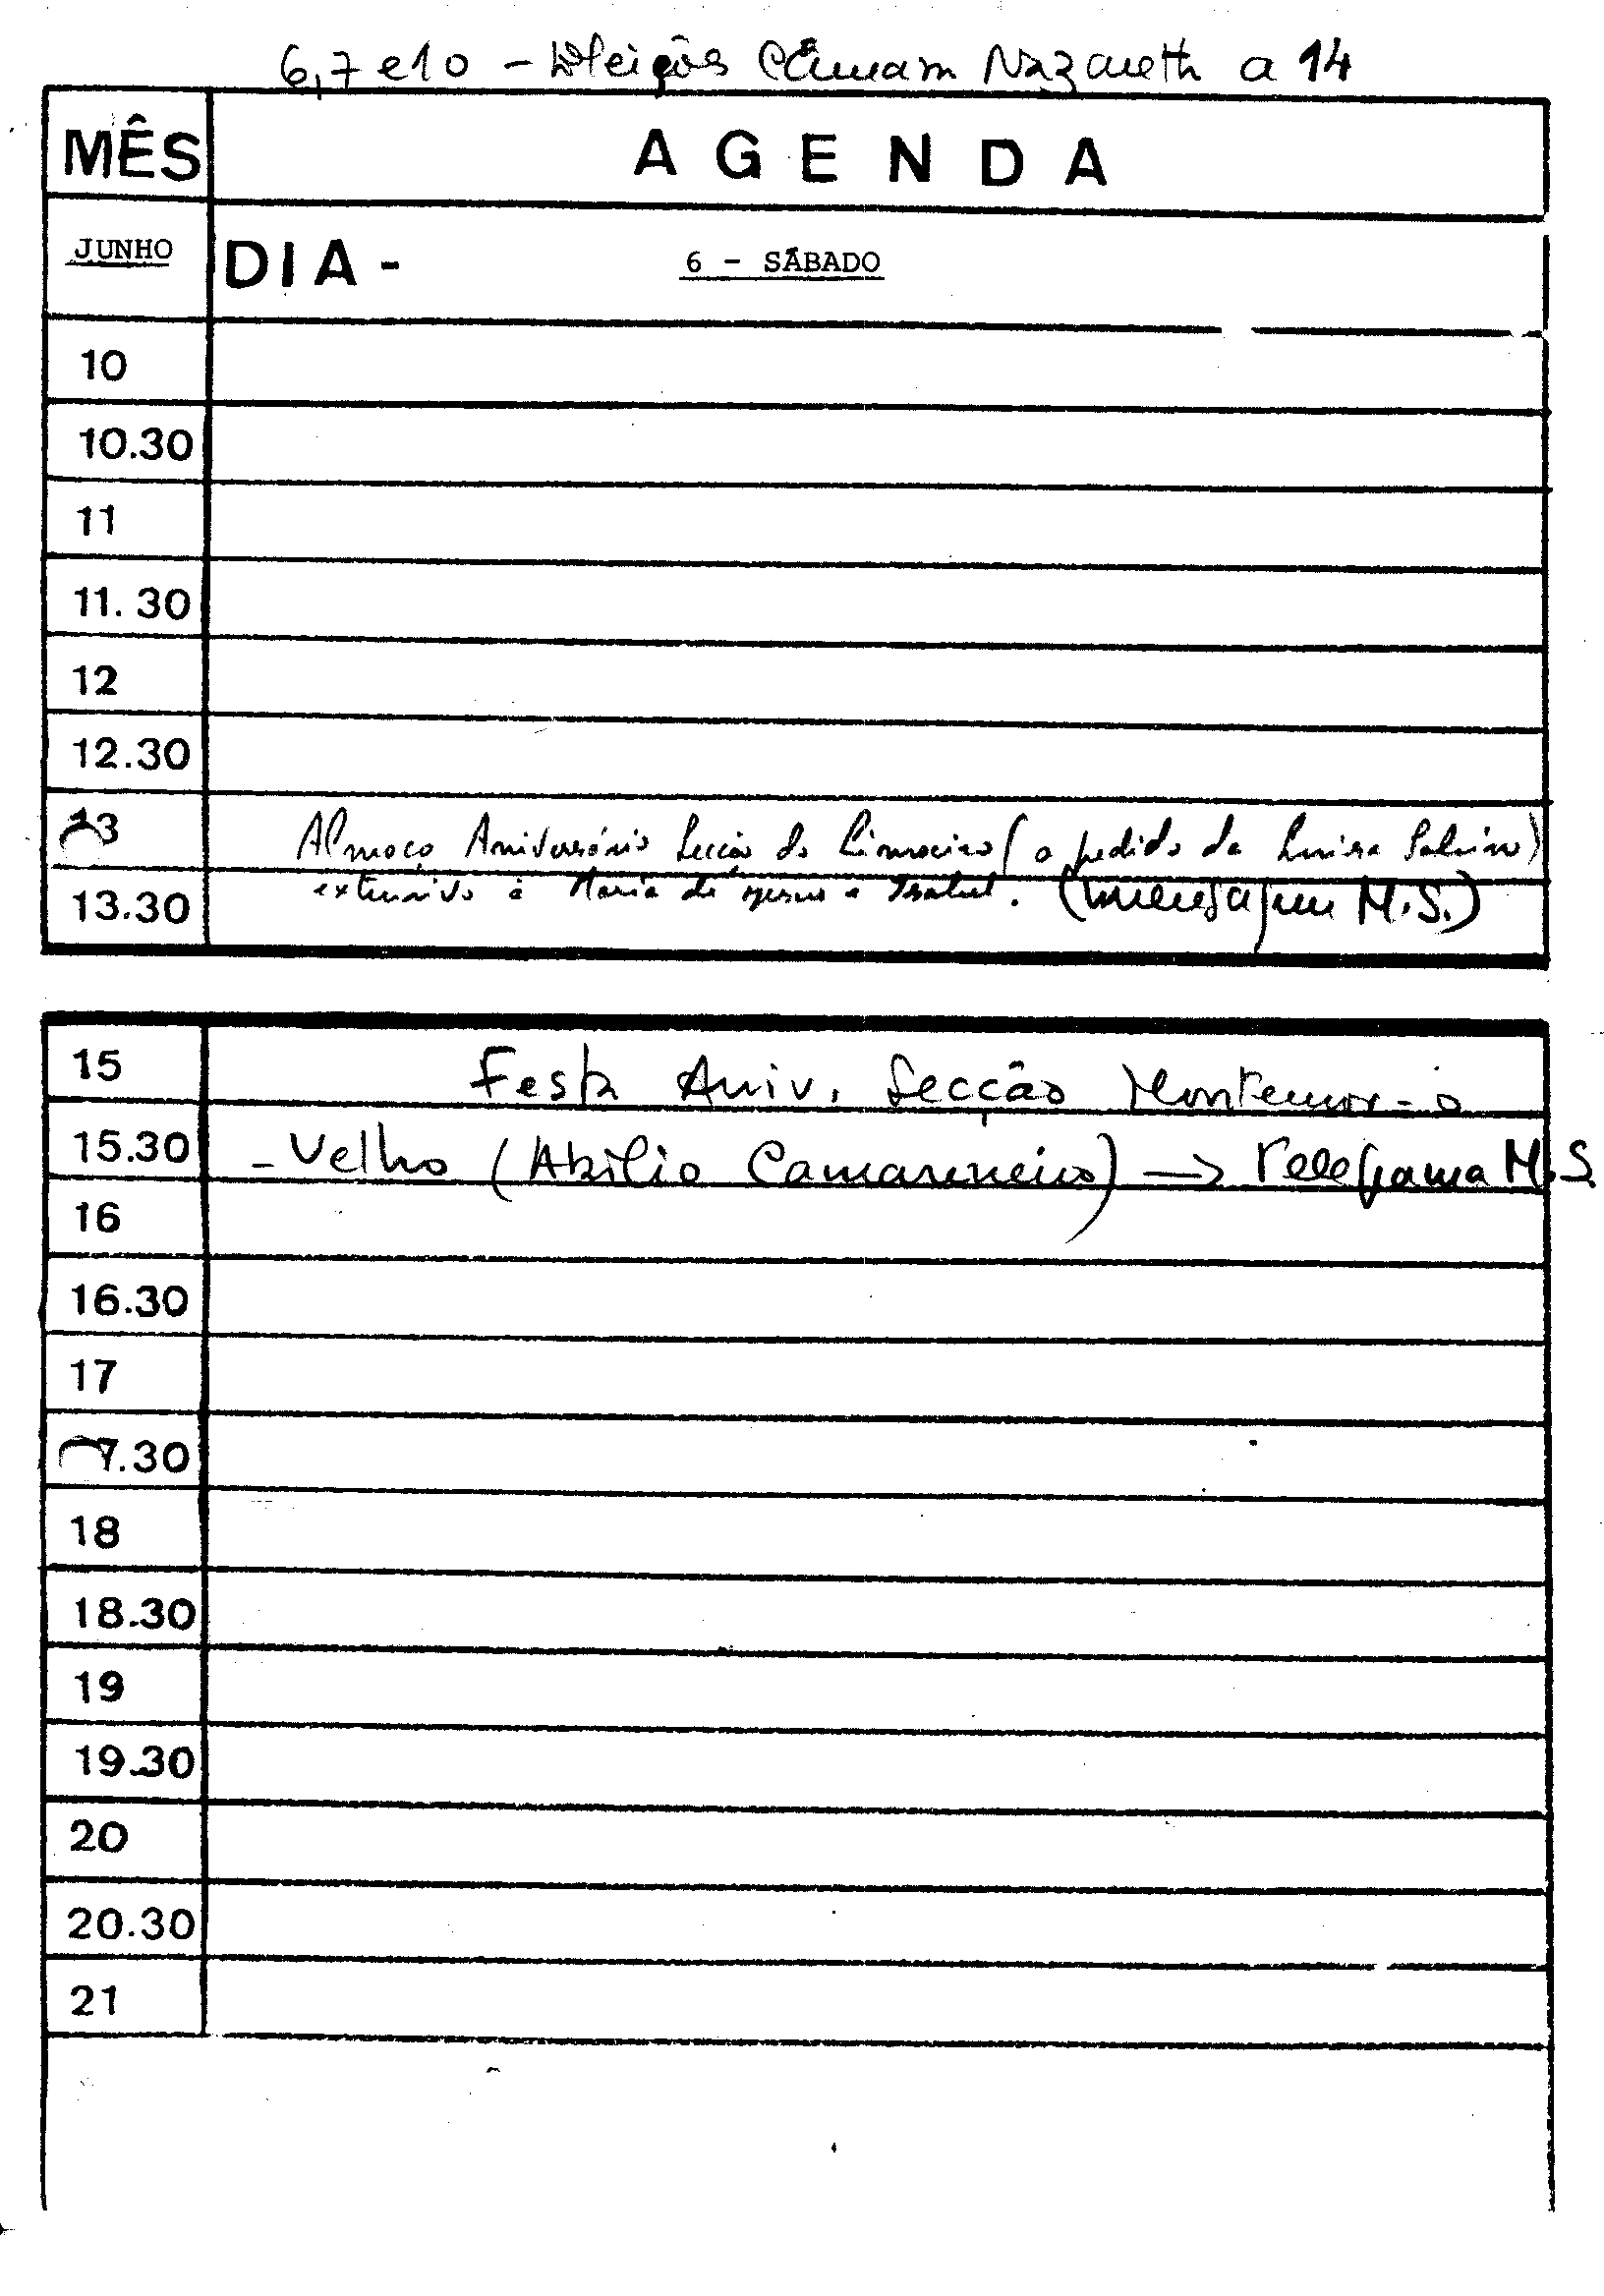 6,7 e 10 - Eleições Câmara Nazareth a 14
MÊS
AGENDA
JUNHO
DIA -
6 - SÁBADO
10
10.30
11
11.30
12
12.30
13
Almoço Aniversário Secção do (a pedido da Luisa
13.30
extensivo à Maria de Jesus e Isabel. (mensagem M.S.)
15
Festa Aniv. Secção Montemor-o
15.30
-Velho (Abílio Camarneiro) → Telegrama M.S.
16
16.30
17
17.30
18
18.30
19
19.30
20
20.30
21